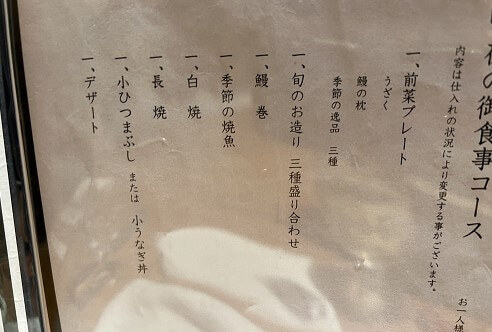 の御食事コース
内容は仕入れの状況により変更する事がございます。
お一人様
一、前菜プレート
うざく
鰻の枕
季節の逸品 三種
一、旬のお造り 三種盛り合わせ
一、鰻 巻
一、季節の焼魚
一、白 焼
一、長 焼
一、小ひつまぶし または 小うなぎ丼
一、デザート